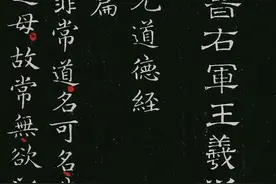 晉右軍王羲
道德經
篇
非常道名可名
母故常無欲